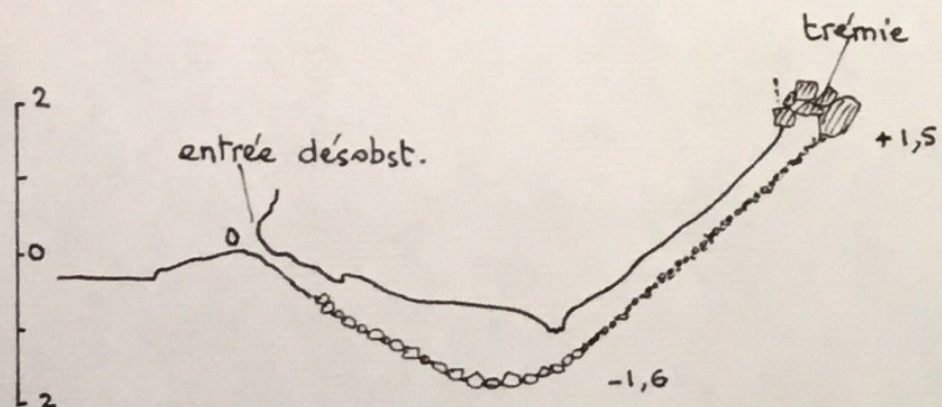 trémie
2
+1,5
entrée désobst.
0
0
-1,6
2